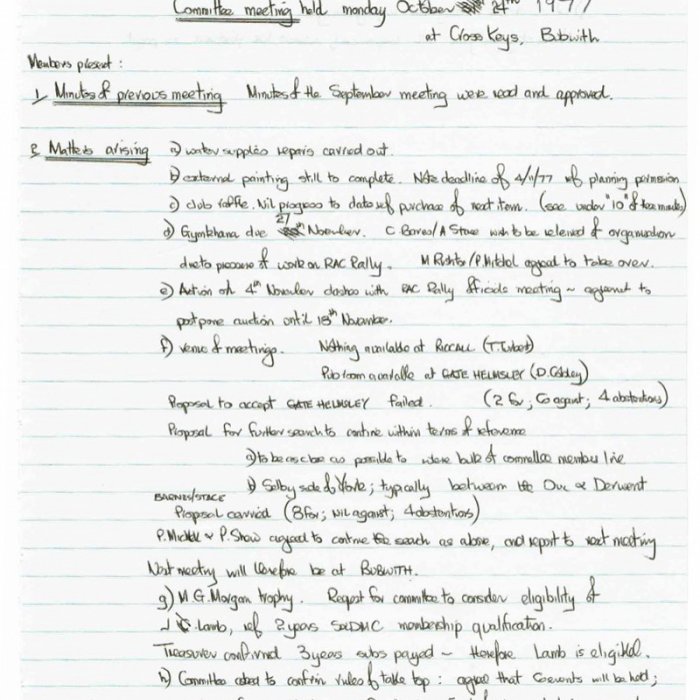 Committee meeting held monday October 24th 1977
at Cross Keys, Bubwith
Members present :
1, Minutes of previous meeting Minutes of the September meeting were read and approved.
2, Matters arising a) water supplies repairs carried out.
b) external painting still to complete. Note deadline of 4/11/77 ref planning permission
c) club raffle. Nil progress to date ref purchase of next item. (see under "10" of
27
d) Gymkhana due November. C Barnes/A Stace wish to be relieved of organisation
due to pressure of work on RAC Rally. M /P. agreed to take over.
e) Auction on 4th November clashes with RAC Rally officials meeting ~ agreement to
postpone auction until 18th November.
f) venue of meetings. Nothing available at RICCALL (T. )
Pub room available at GATE HELMSLEY (D. )
Proposal to accept GATE HELMSLEY failed. (2 for; 6 against; 4 abstentions)
Proposal for further search to continue within terms of reference
a) to be as close as possible to where bulk of committee members live
b) Selby side of York; typically between the Ouse & Derwent
BARNES/STACE
Proposal carried (8 for; nil against; 4 abstentions)
P. & P. Shaw agreed to continue the search as above, and report to next meeting
Next meeting will therefore be at BUBWITH.
g) M G. Morgan trophy. Request for committee to consider eligibility of
J Lamb, ref 2 years membership qualification.
Treasurer confirmed 3 years subs payed ~ therefore Lamb is eligible.
h) Committee asked to confirm rules of : agreed that 6 events will be held;